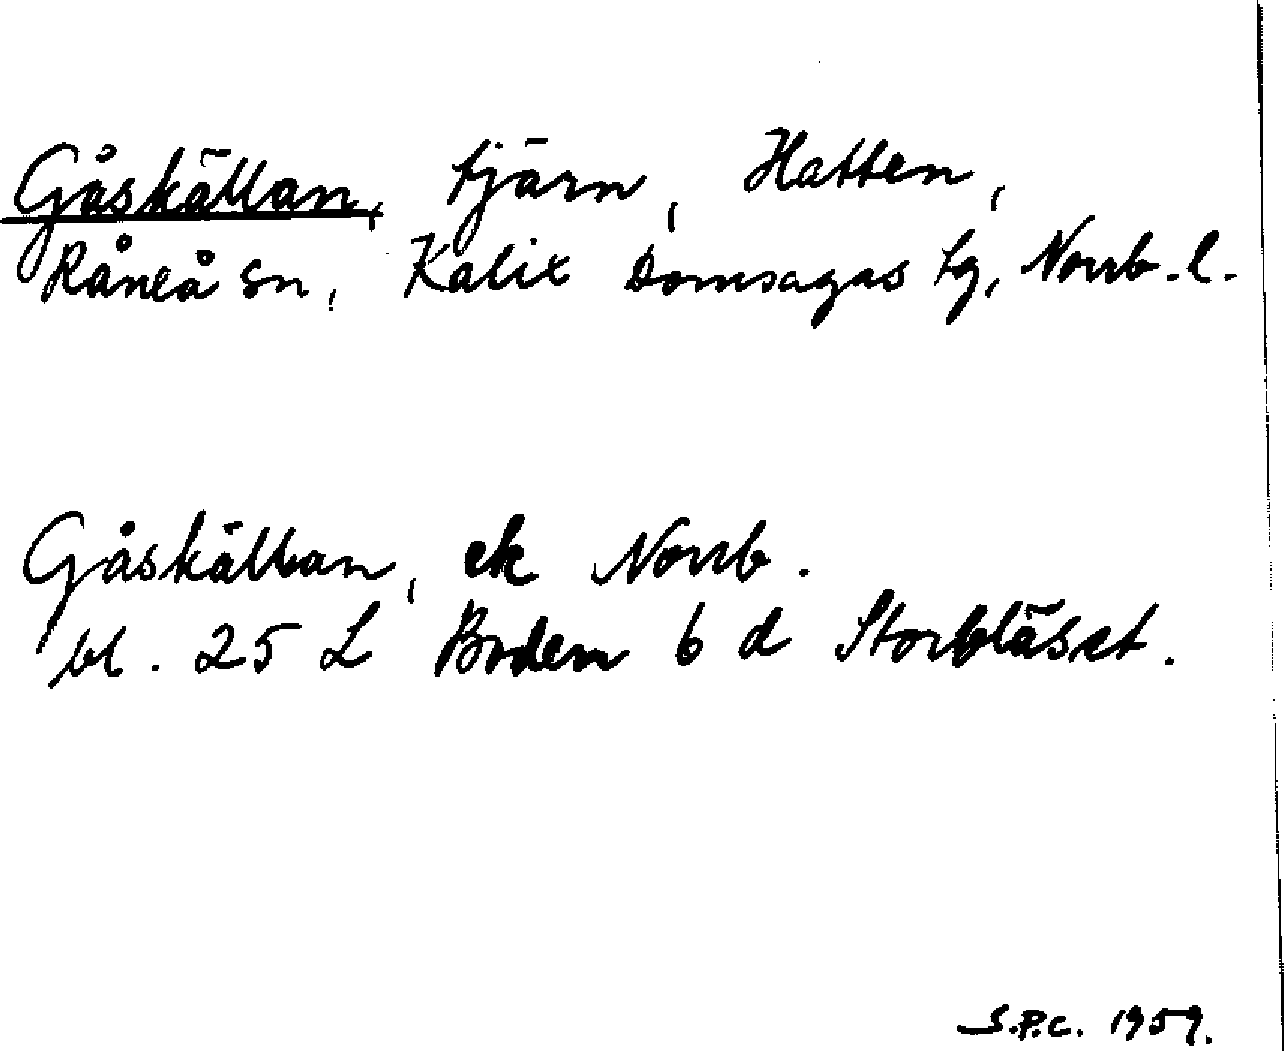 Gåskällan, tjärn, Hatten,
Råneå sn, Kalix Domsagas tg, Norrb. l.
Gåskällan, ek Norrb.
bl. 25 L Boden 6 d Storbläset.
S.P.C. 1959.